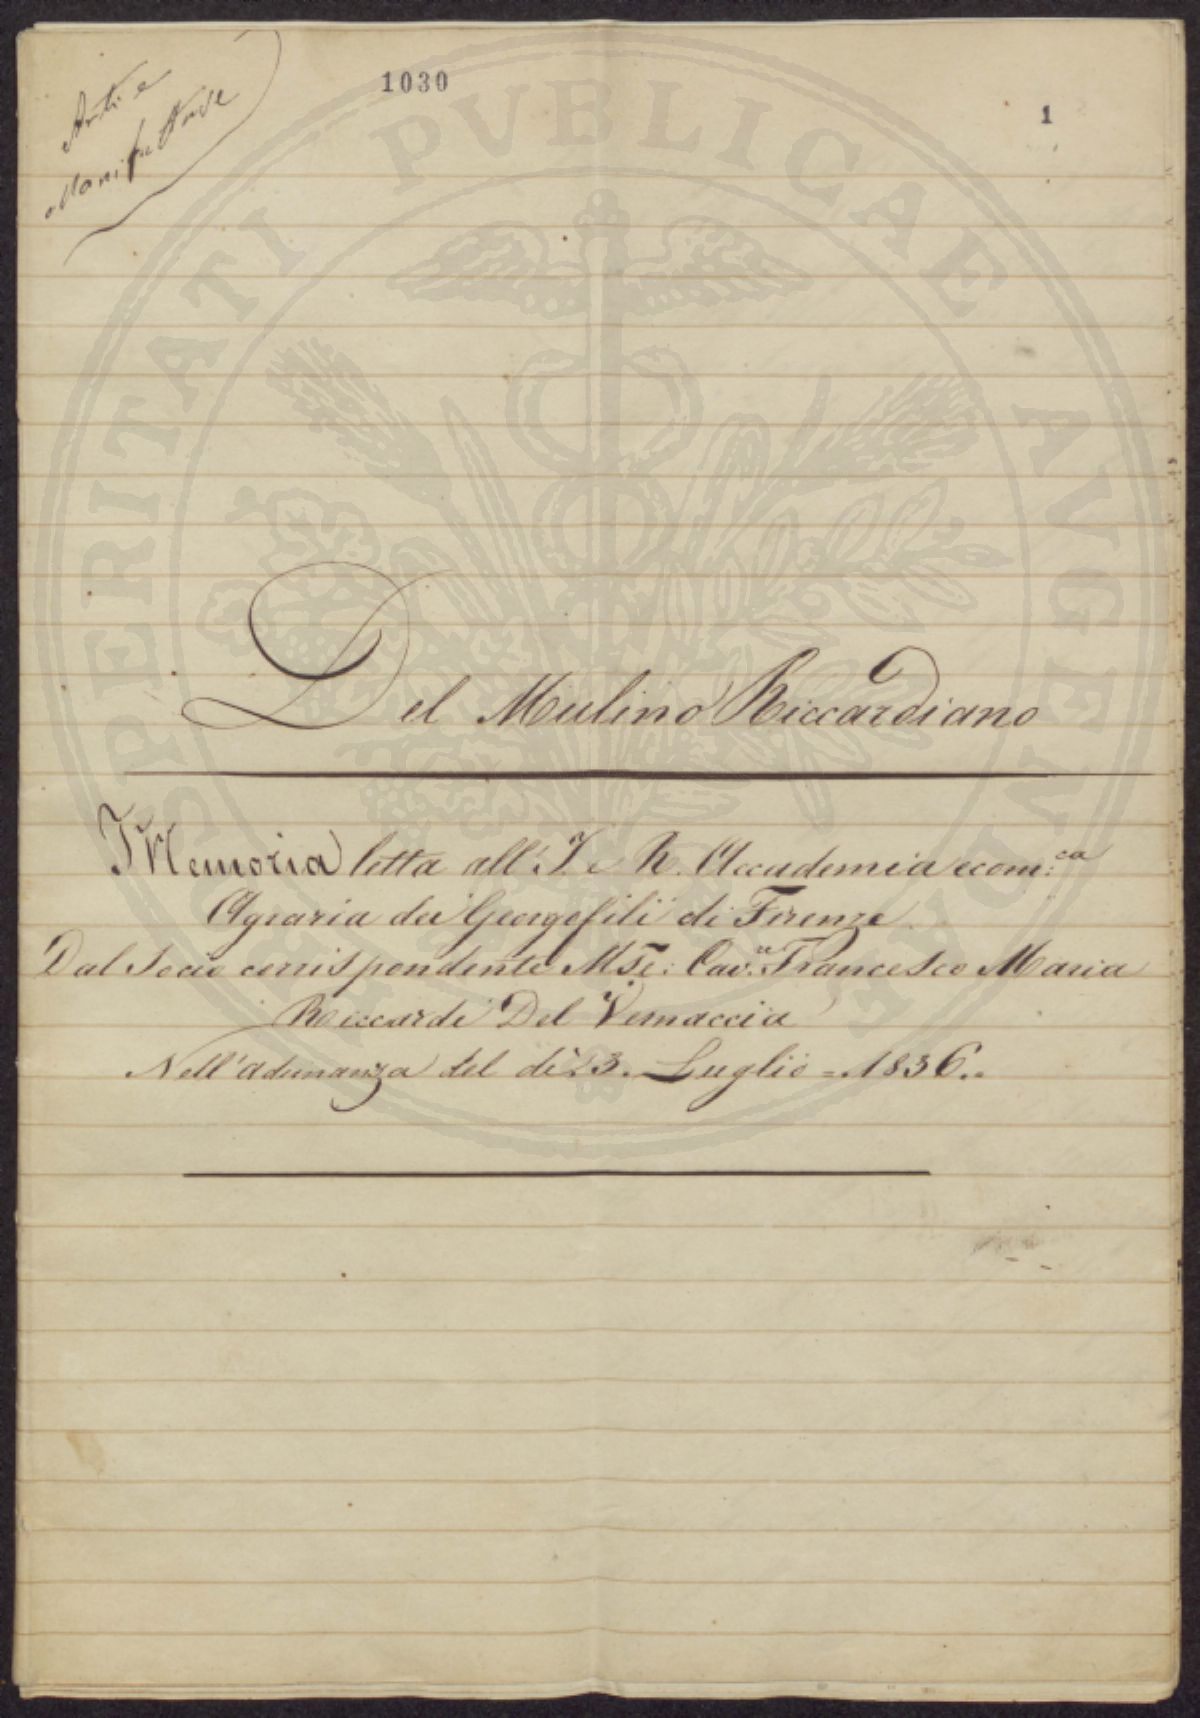 Arti e
Manifatture
1030
1
PROSPERITATI PVBLICAE AVGENDAE
Del Mulino Riccardiano
Memoria letta all' I. e R. Accademia econ:ca
Agraria dei Georgofili di Firenze
Dal Socio corrispondente Mse: Cav.re Francesco Maria
Riccardi Del Vernaccia
Nell'adunanza del dì 3. Luglio = 1836..